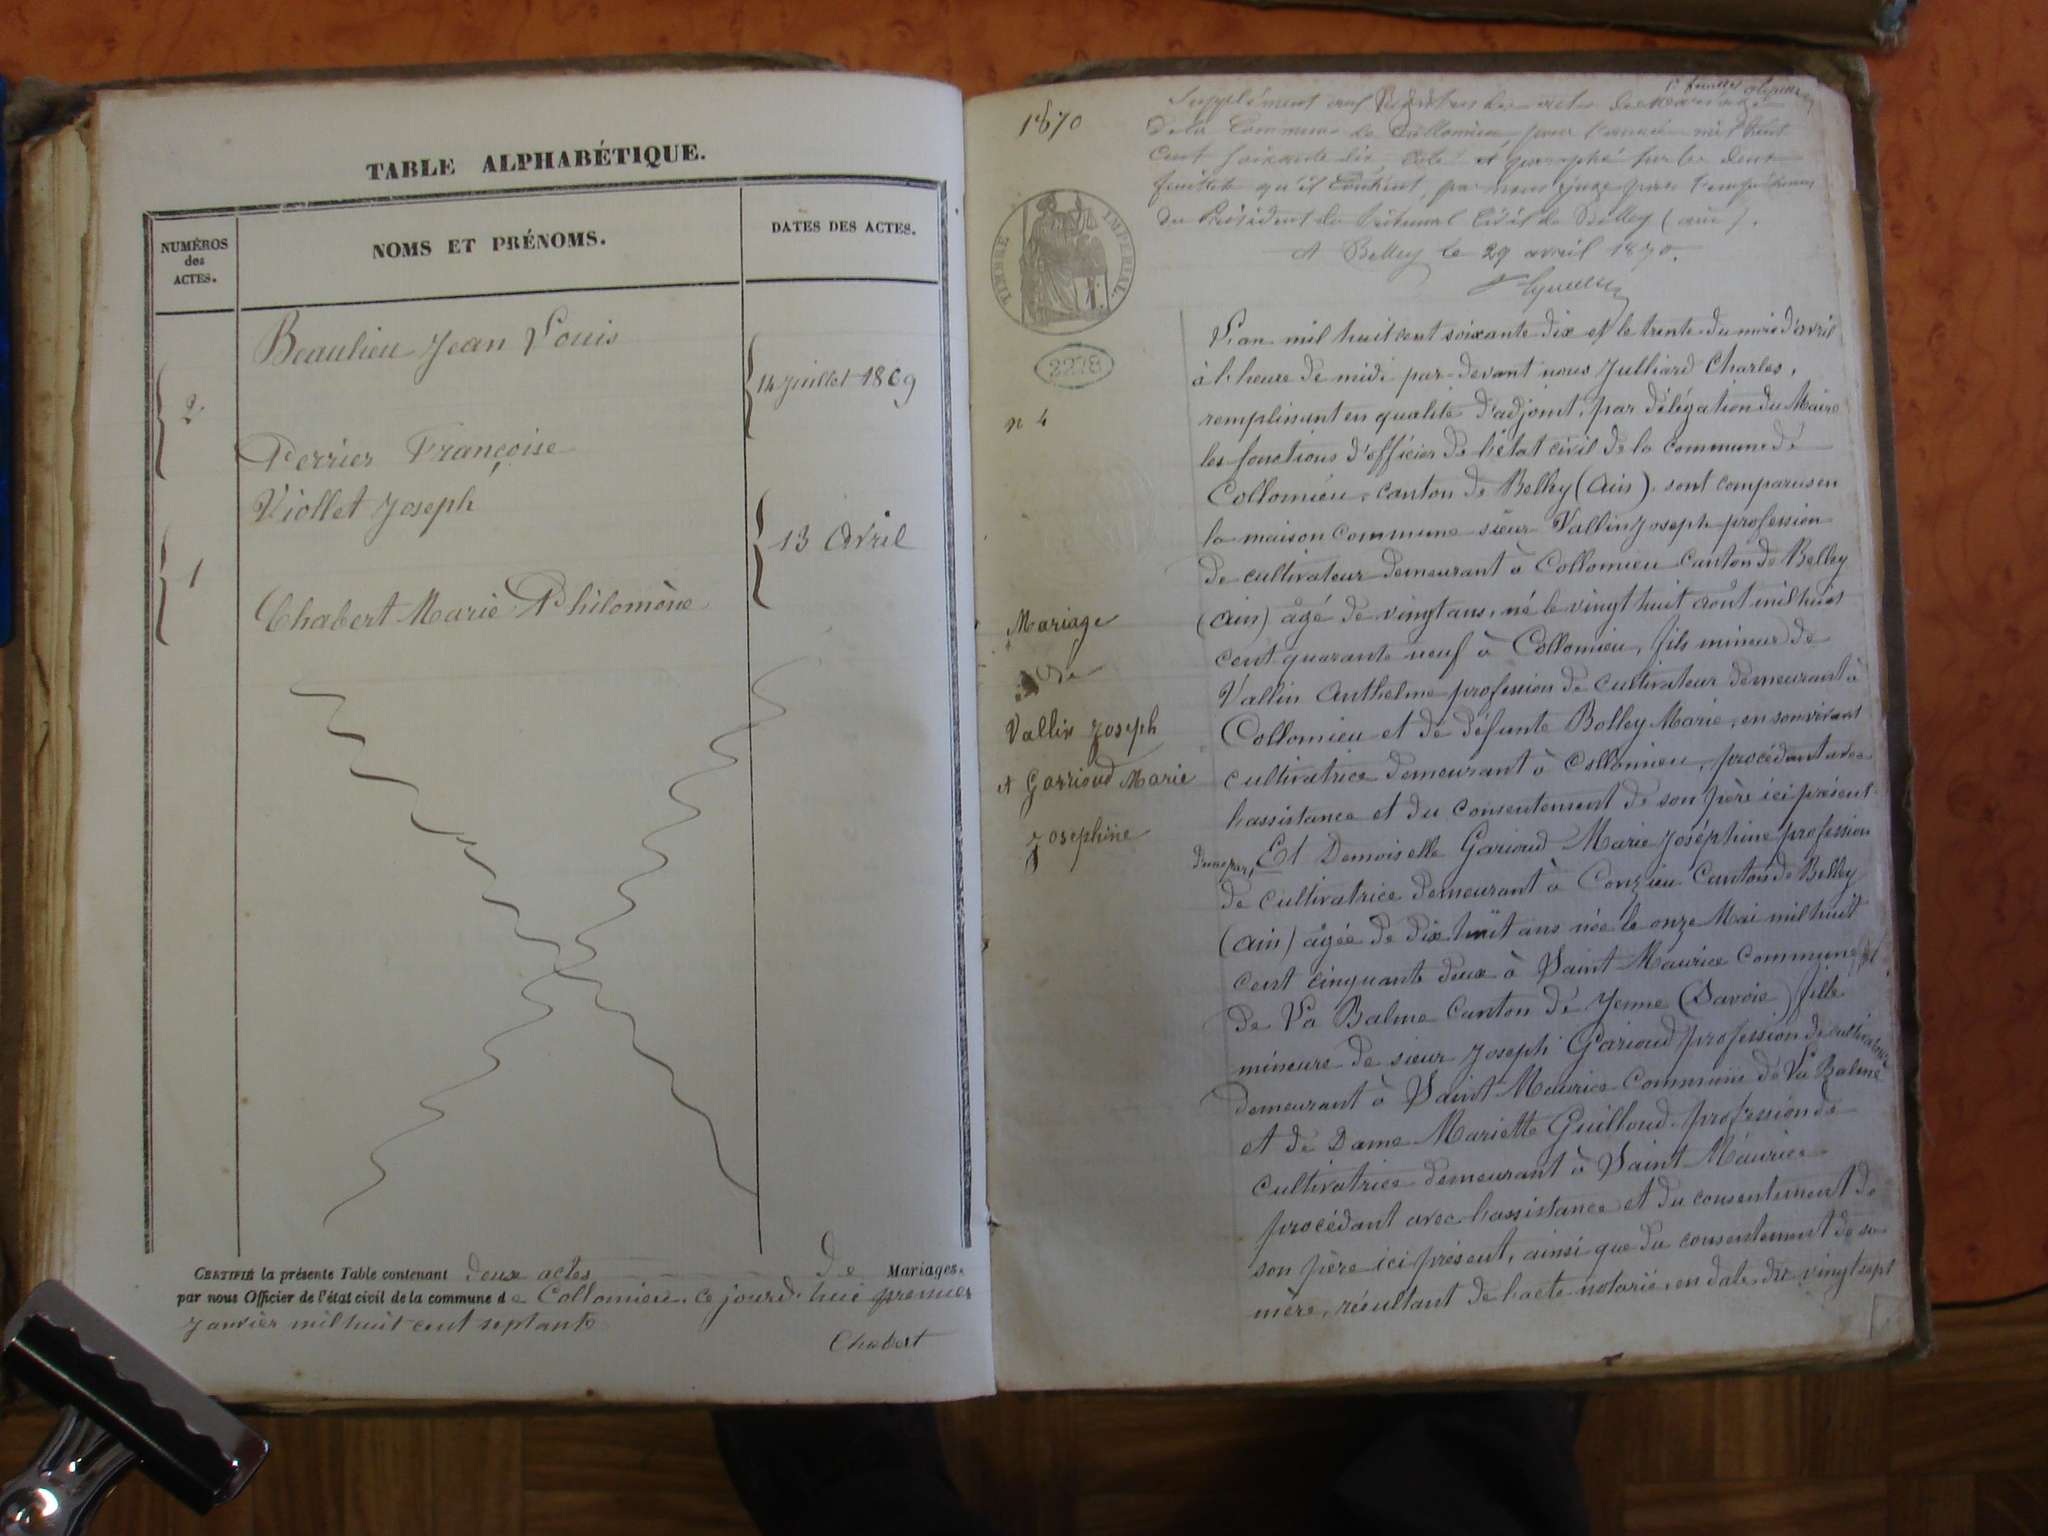 TABLE ALPHABÉTIQUE.
NUMÉROS
des
ACTES.
NOMS ET PRÉNOMS.
DATES DES ACTES.
Beaulieu Jean Louis
2
14 juillet 1869
Perrier Françoise
Viollet Joseph
1
13 Avril
Chabert Marie Philomène
CERTIFIÉ la présente Table contenant deux actes de Mariages.
par nous Officier de l'état civil de la commune de Collomieu, ce jourd'hui premier
Janvier mil huit cent septante
Chabert
1870
1er feuillet
Supplément aux Registres des actes de mariage
de la Commune de Collomieu pour l'année mil huit
cent soixante dix, coté et paraphé sur les deux
feuillets qu'il contient, par nous juge pour l'empêchement
du Président du Tribunal Civil de Belley (ain).
A Belley le 29 avril 1870.
TIMBRE IMPÉRIAL.
2278
n 4
Mariage
de
Vallin Joseph
et Garrioud Marie
Josephine
L'an mil huit cent soixante dix et le trente du mois d'avril
à l'heure de midi par-devant nous Julliard Charles,
remplissant en qualité d'adjoint, par délégation du Maire
les fonctions d'officier de l'état civil de la commune de
Collomieu, canton de Belley (Ain). sont comparus en
la maison commune sieur Vallin Joseph profession
de cultivateur demeurant à Collomieu canton de Belley
(Ain) âgé de vingt ans, né le vingt huit août mil huit
cent quarante neuf à Collomieu, fils mineur de
Vallin Anthelme profession de cultivateur demeurant à
Collomieu et de défunte Bolley Marie, en son vivant
cultivatrice demeurant à Collomieu, procédant avec
l'assistance et du consentement de son père ici présent
d'une part, Et Demoiselle Garioud Marie Joséphine profession
de cultivatrice demeurant à Conzieu Canton de Belley
(Ain) âgée de dix huit ans née le onze Mai mil huit
cent cinquante deux à Saint Maurice Commune
de La Balme Canton de Yenne (Savoie) fille
mineure de sieur Joseph Garioud profession de cultivateur
demeurant à Saint Maurice Commune de La Balme
et de Dame Mariette Guilloud profession de
cultivatrice demeurant à Saint Maurice
procédant avec l'assistance et du consentement de
son père ici présent, ainsi que du consentement de sa
mère, résultant de l'acte notarié, en date du vingt sept